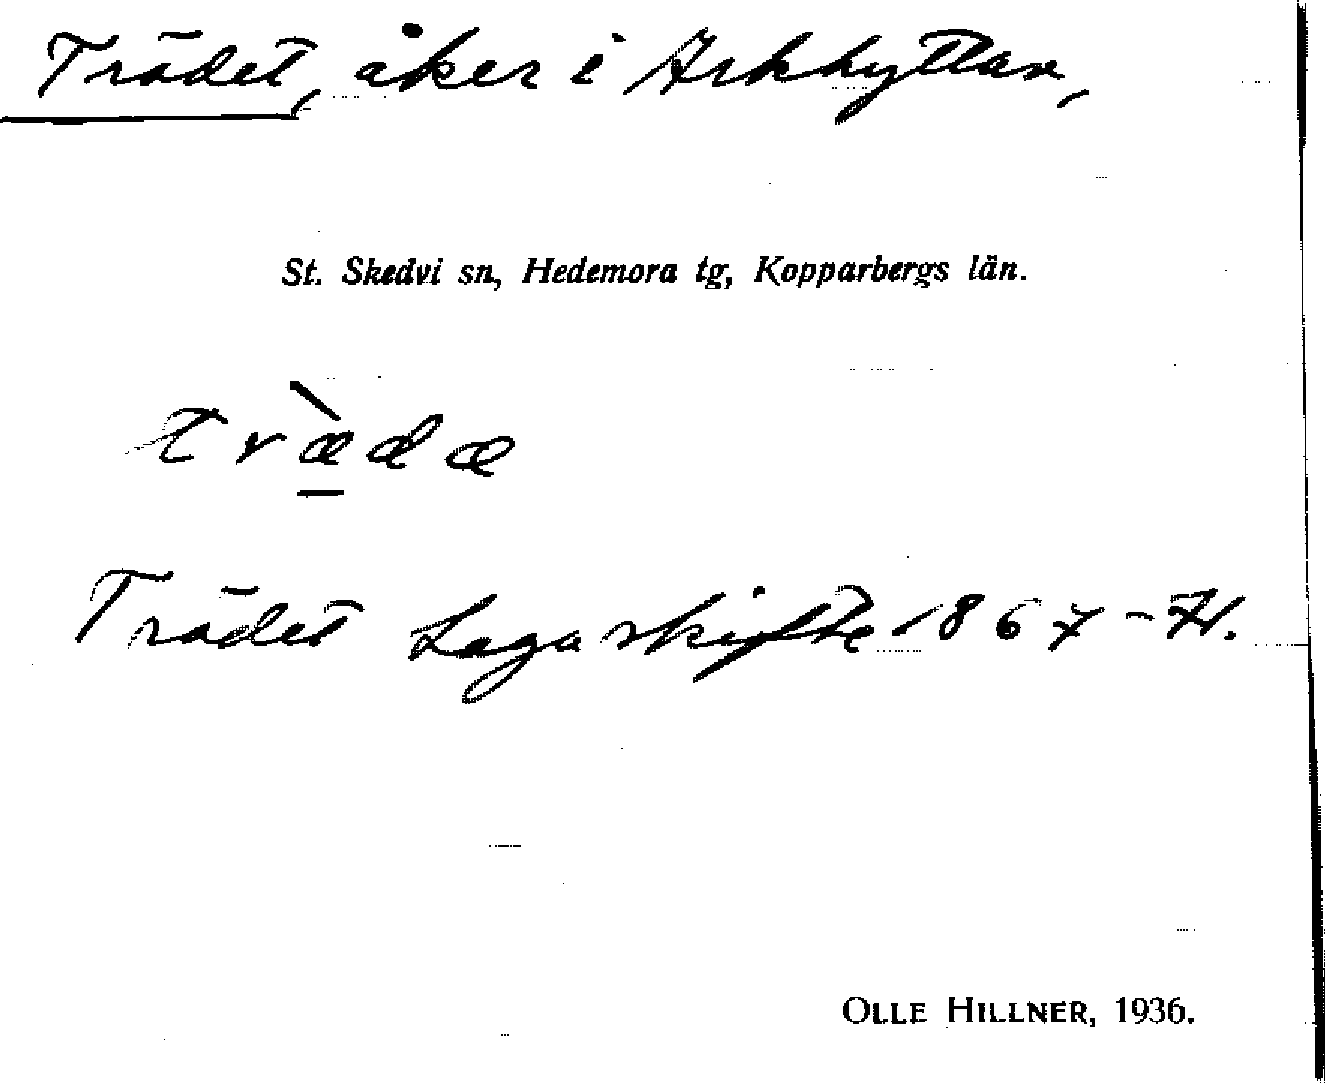 Trädet, åker i Arkhyttan,
St. Skedvi sn, Hedemora tg, Kopparbergs län.
træ̱̀dæ
Trädet Laga skifte 1867-71.
OLLE HILLNER, 1936.